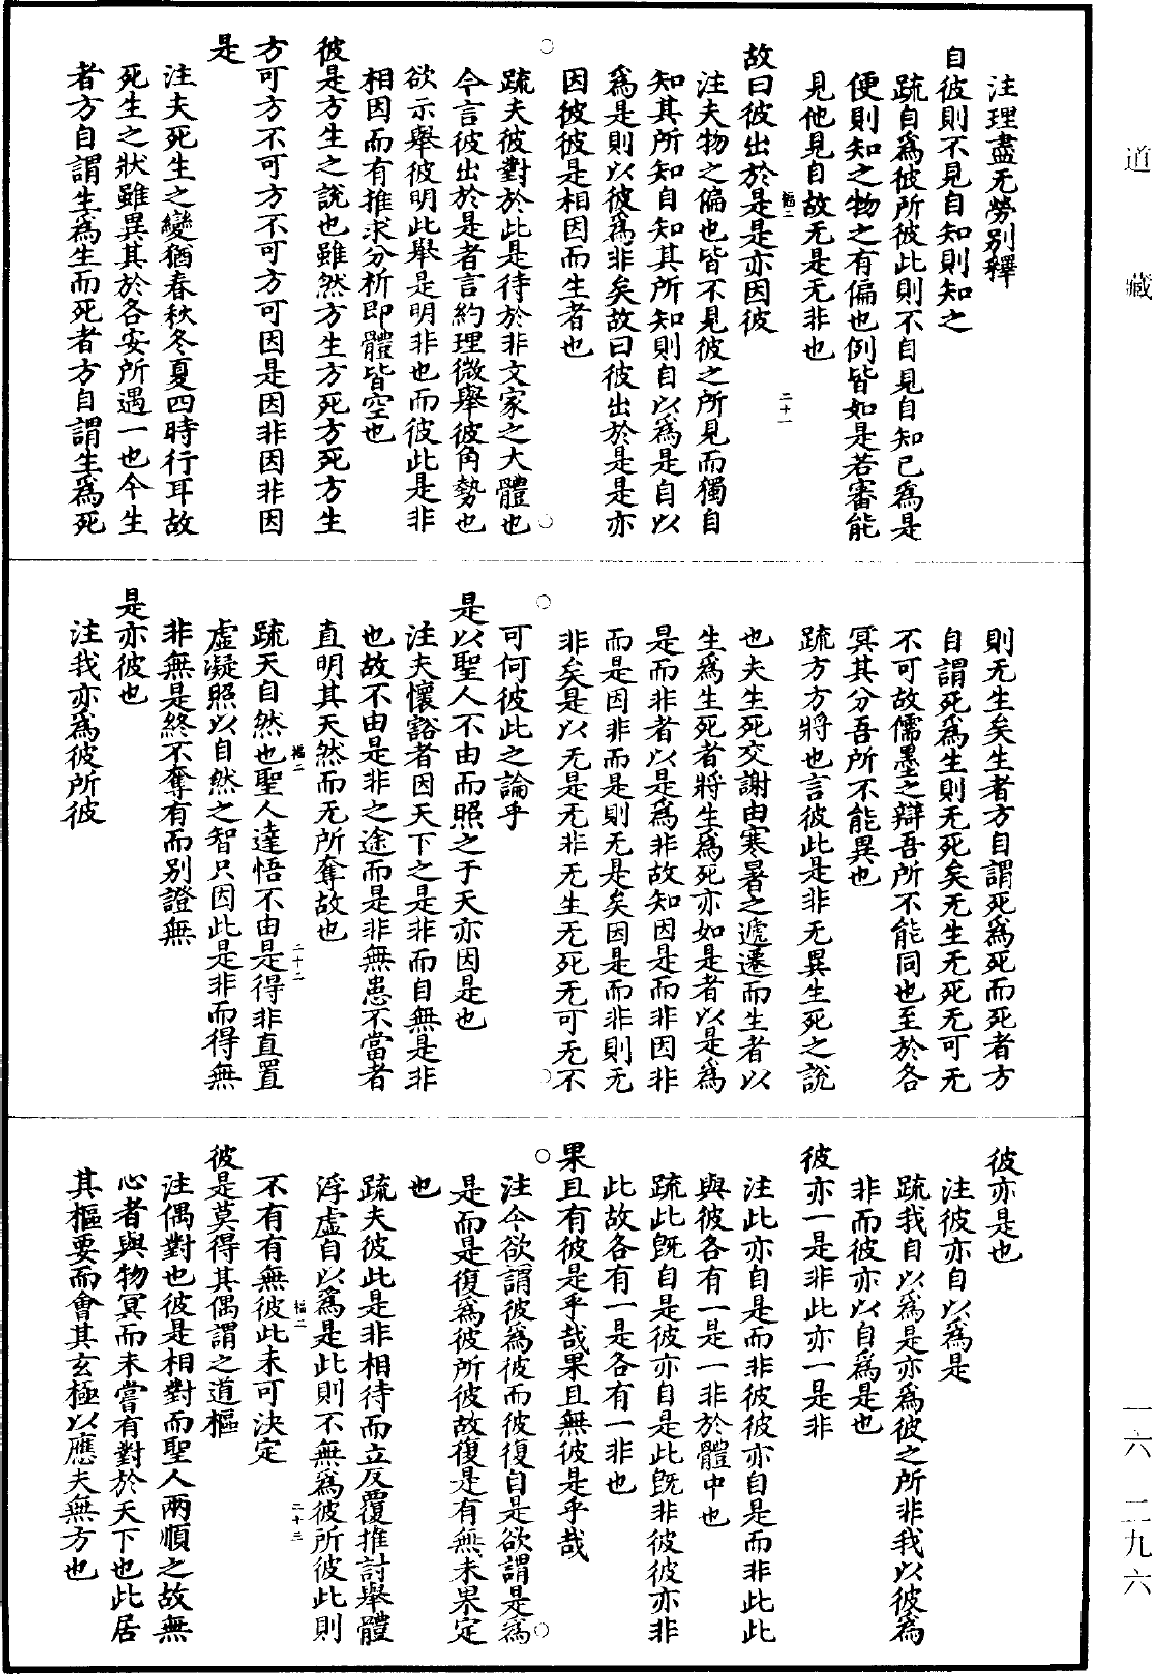 道藏
注理盡无勞別釋
自彼則不見自知則知之
疏自為彼所彼此則不自見自知已為是
便則知之物之有偏也例皆如是若審能
見他見自故无是无非也
故曰彼出於是是亦因彼
注夫物之偏也皆不見彼之所見而獨自
知其所知自知其所知則自以為是自以
為是則以彼為非矣故曰彼出於是是亦
因彼彼是相因而生者也
疏夫彼對於此是待於非文家之大體也
今言彼出於是者言約理微舉彼角勢也
欲示舉彼明此舉是明非也而彼此是非
相因而有推求分析即體皆空也
彼是方生之說也雖然方生方死方死方生
方可方不可方不可方可因是因非因非因
是
注夫死生之變猶春秋冬夏四時行耳故
死生之狀雖異其於各安所遇一也今生
者方自謂生為生而死者方自謂生為死
則无生矣生者方自謂死為死而死者方
自謂死為生則无死矣无生无死无可无
不可故儒墨之辯吾所不能同也至於各
冥其分吾所不能異也
疏方方將也言彼此是非无異生死之說
也夫生死交謝由寒暑之遞遷而生者以
生為生死者將生為死亦如是者以是為
是而非者以是為非故知因是而非因非
而是因非而是則无是矣因是而非則无
非矣是以无是无非无生无死无可无不
可何彼此之論乎
是以聖人不由而照之于天亦因是也
注夫懷豁者因天下之是非而自無是非
也故不由是非之途而是非無患不當者
直明其天然而无所奪故也
疏天自然也聖人達悟不由是得非直置
虛凝照以自然之智只因此是非而得無
非無是終不奪有而別證無
是亦彼也
注我亦為彼所彼
彼亦是也
注彼亦自以為是
疏我自以為是亦為彼之所非我以彼為
非而彼亦以自為是也
彼亦一是非此亦一是非
注此亦自是而非彼彼亦自是而非此此
與彼各有一是一非於體中也
疏此既自是彼亦自是此既非彼彼亦非
此故各有一是各有一非也
果且有彼是乎哉果且無彼是乎哉
注今欲謂彼為彼而彼復自是欲謂是為
是而是復為彼所彼故復是有無未果定
也
疏夫彼此是非相待而立反覆推討舉體
浮虛自以為是此則不無為彼所彼此則
不有有無彼此未可決定
彼是莫得其偶謂之道樞
注偶對也彼是相對而聖人兩順之故無
心者與物冥而未嘗有對於天下也此居
其樞要而會其玄極以應夫無方也
二十一
二十二
二十三
一六 二九六